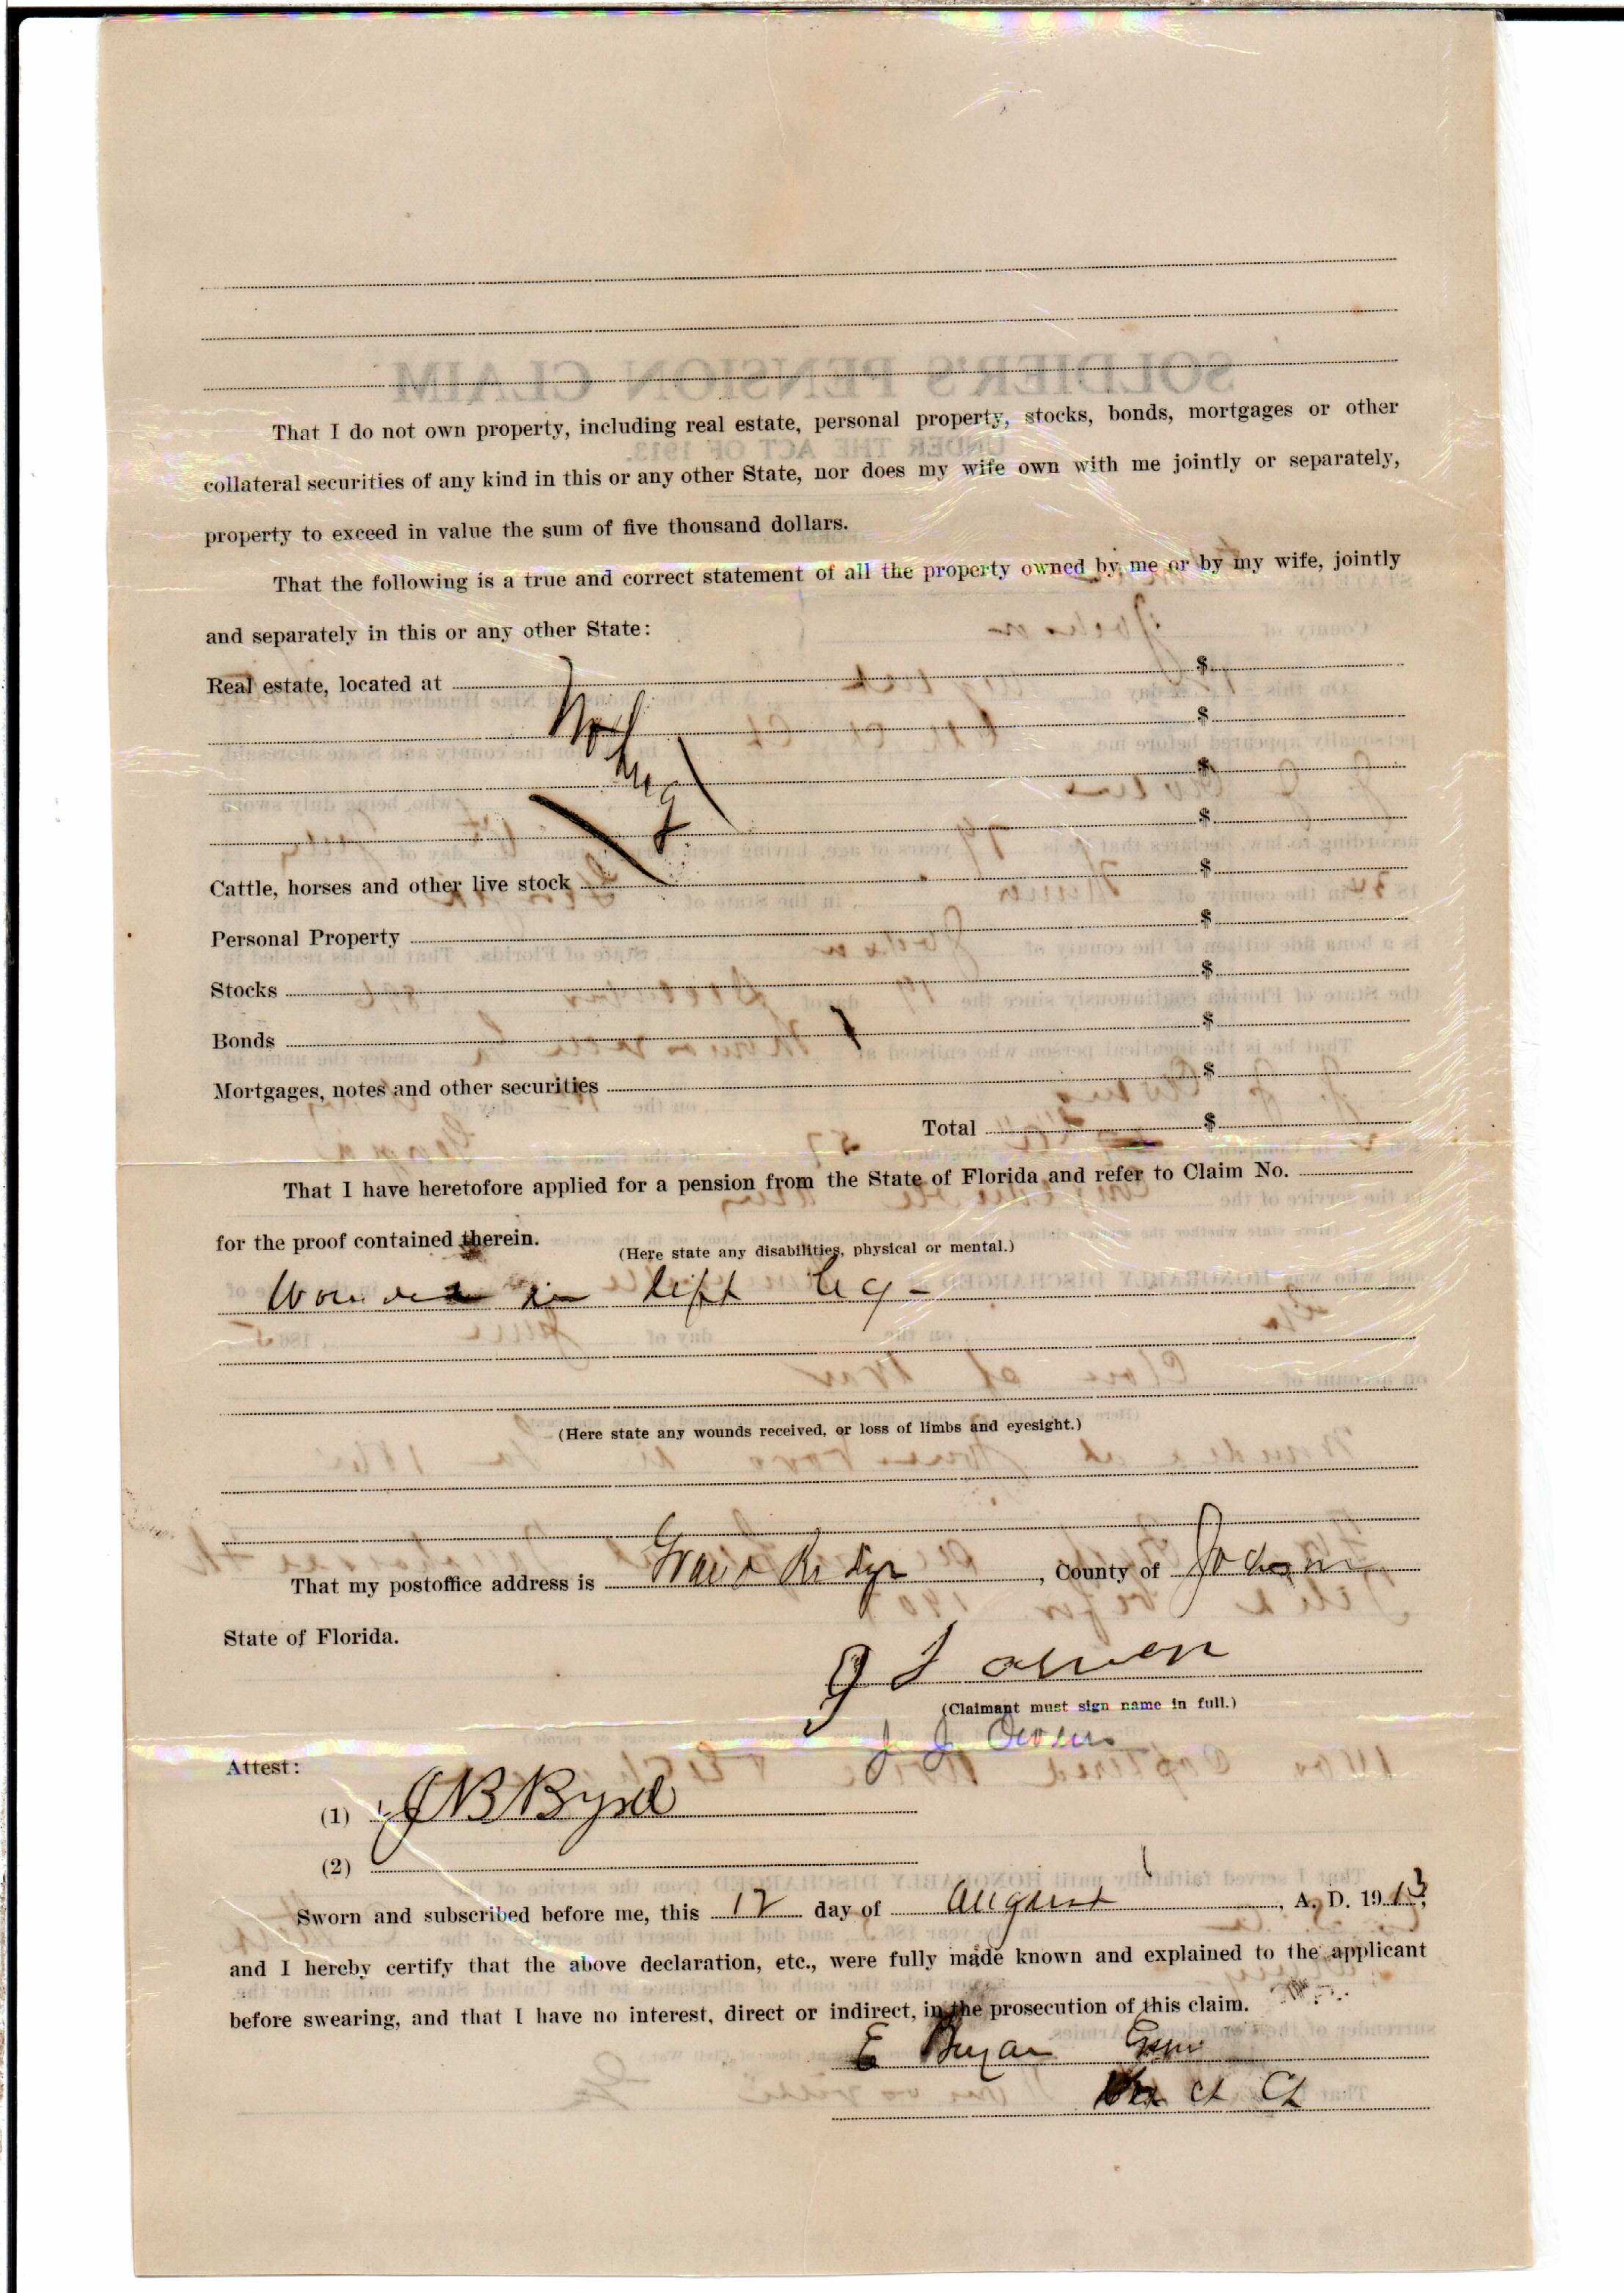 That I do not own property, including real estate, personal property, stocks, bonds, mortgages or other
collateral securities of any kind in this or any other State, nor does my wife own with me jointly or separately,
property to exceed in value the sum of five thousand dollars.
That the following is a true and correct statement of all the property owned by me or by my wife, jointly
and separately in this or any other State:
Real estate, located at $
$
$
$
Cattle, horses and other live stock $
Personal Property $
Stocks $
Bonds $
Mortgages, notes and other securities $
Total $
That I have heretofore applied for a pension from the State of Florida and refer to Claim No.
for the proof contained therein.
(Here state any disabilities, physical or mental.)
Wounded in left leg -
(Here state any wounds received, or loss of limbs and eyesight.)
That my postoffice address is Grand Ridge, County of Jackson
State of Florida.
J J Owen
(Claimant must sign name in full.)
J J Owens
Attest:
(1) J B Byrd
(2)
Sworn and subscribed before me, this 12 day of August, A. D. 1913,
and I hereby certify that the above declaration, etc., were fully made known and explained to the applicant
before swearing, and that I have no interest, direct or indirect, in the prosecution of this claim.
E Bryan
Ct Ct